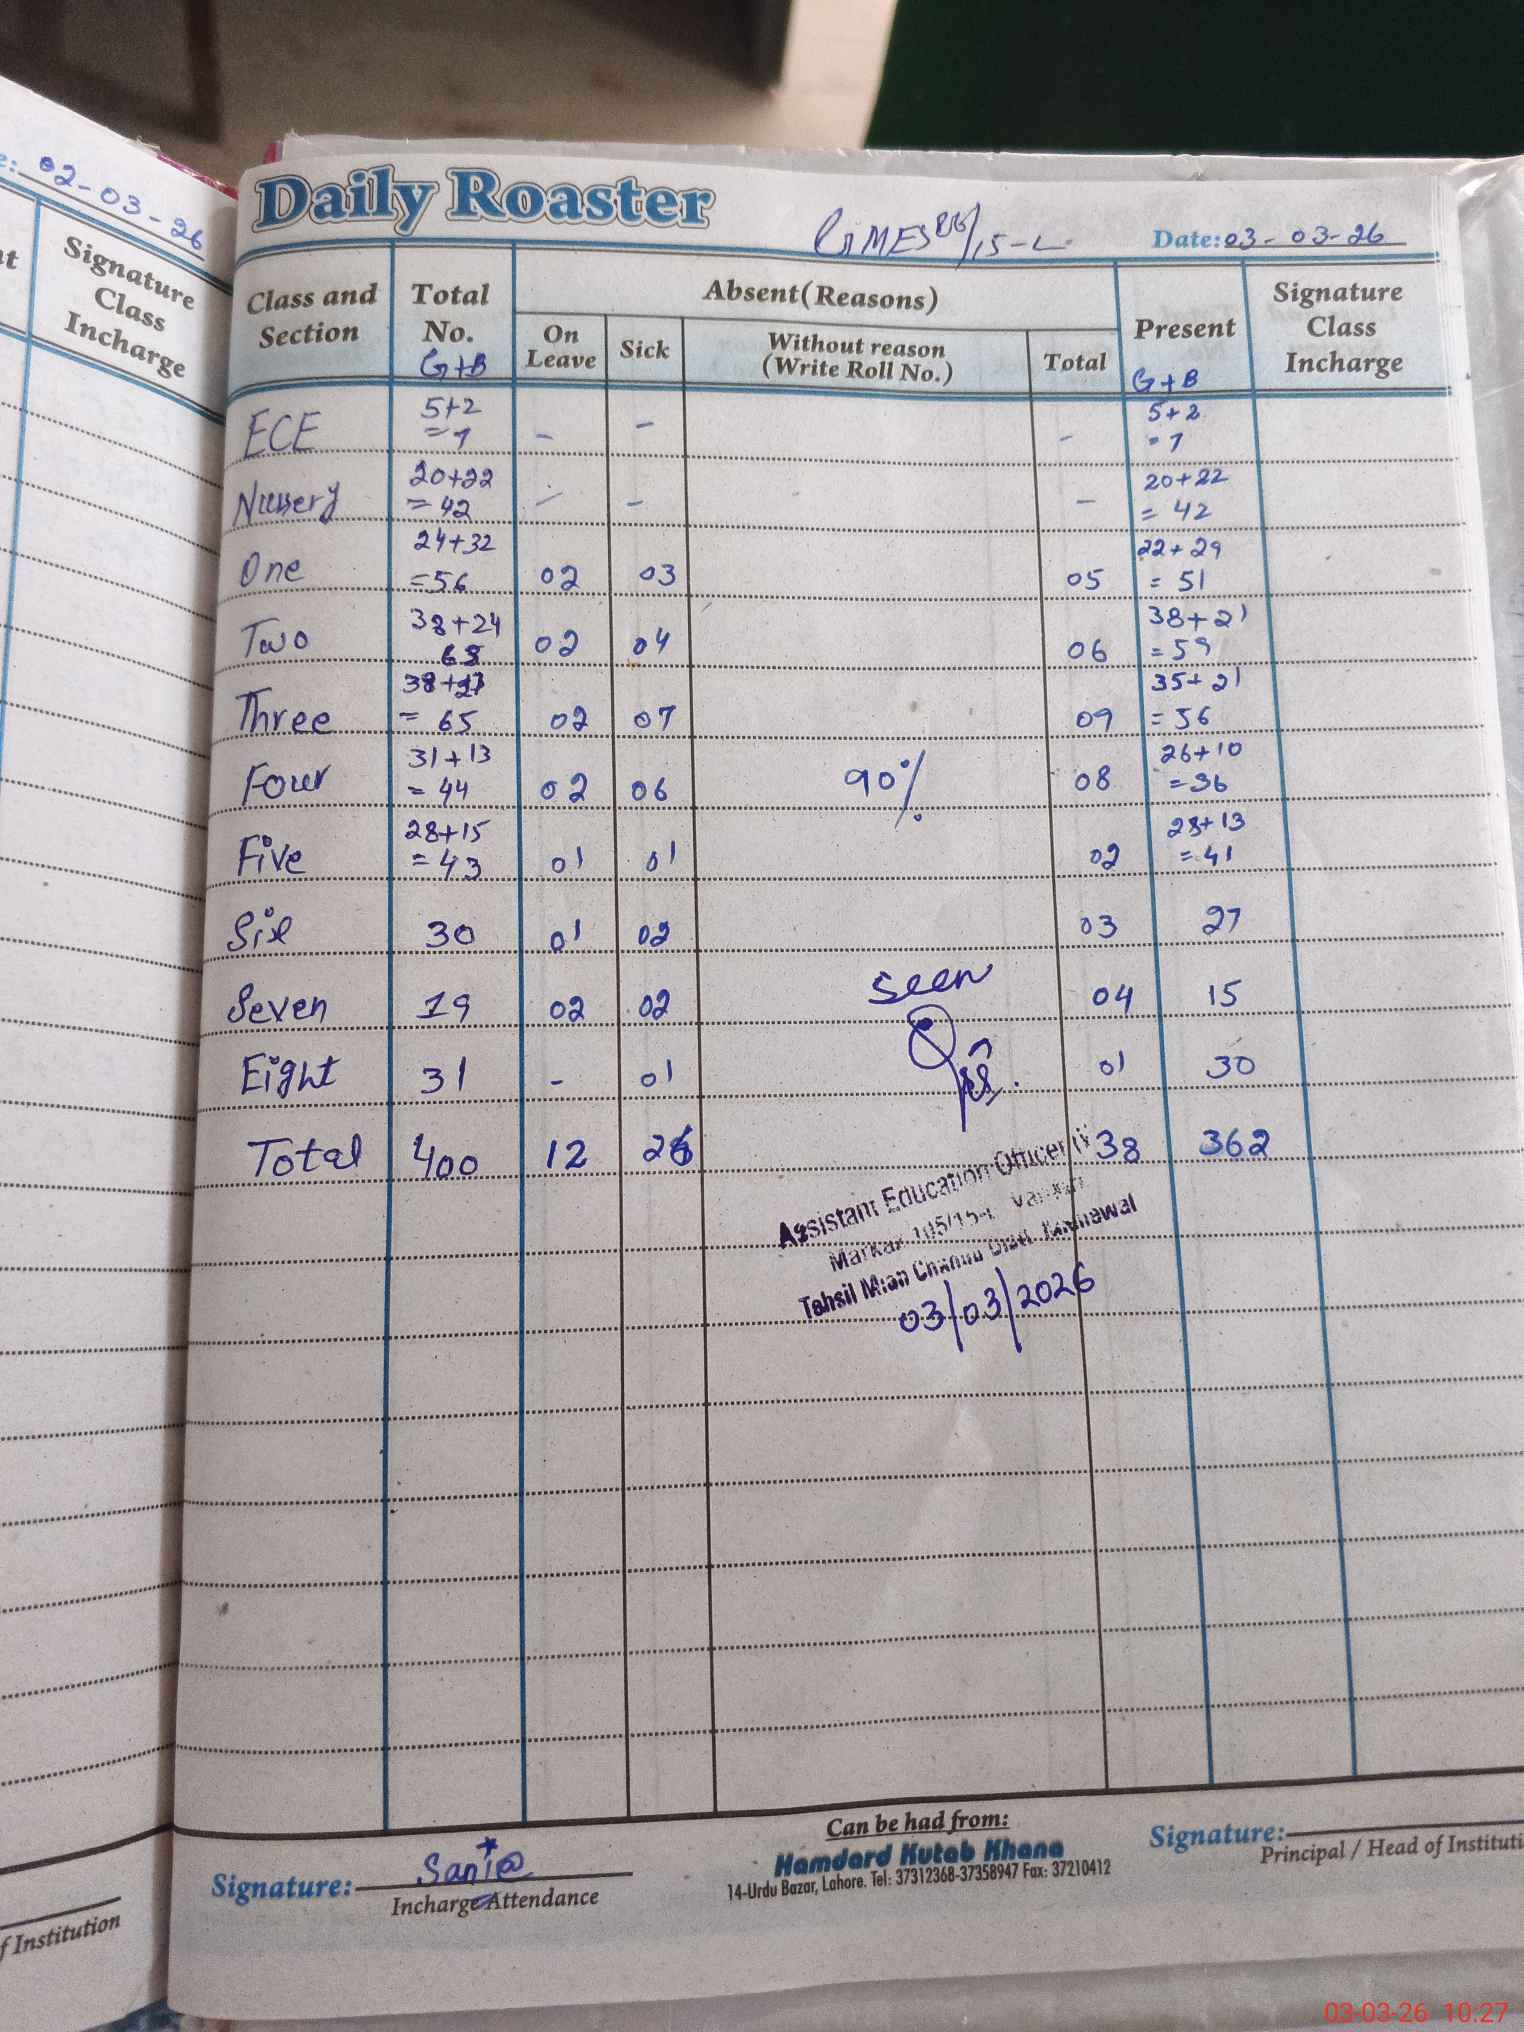 e: 02-03-26
nt
Signature
Class
Incharge
f Institution
Daily Roaster
15-L
Date: 03-03-26
Class and Section Total No. Absent(Reasons) Present Signature Class Incharge
G+B On Leave Sick Without reason (Write Roll No.) Total G+B
ECE 5+2 =7 - - - 5+2 =7
Nursery 20+22 = 42 - - - 20+22 = 42
One 24+32 =56 02 03 05 22+29 = 51
Two 38+24 02 04 06 38+21 =59
Three = 65 02 07 09 35+21 =56
Four 31+13 = 44 02 06 90% 08 26+10 =36
Five 28+15 = 43 01 01 02 28+13 =41
Six 30 01 02 03 27
Seven 19 02 02 04 15
seen
Eight 31 - 01 01 30
Total 400 12 26 38 362
Assistant Education Officer
Markaz 105/15-L
Tehsil Mian Channu Distt. Khanewal
03/03/2026
Signature: Sania
Incharge Attendance
Can be had from:
Hamdard Kutab Khana
14-Urdu Bazar, Lahore. Tel: 37312368-37358947 Fax: 37210412
Signature:
Principal / Head of Instituti
03-03-26 10:27